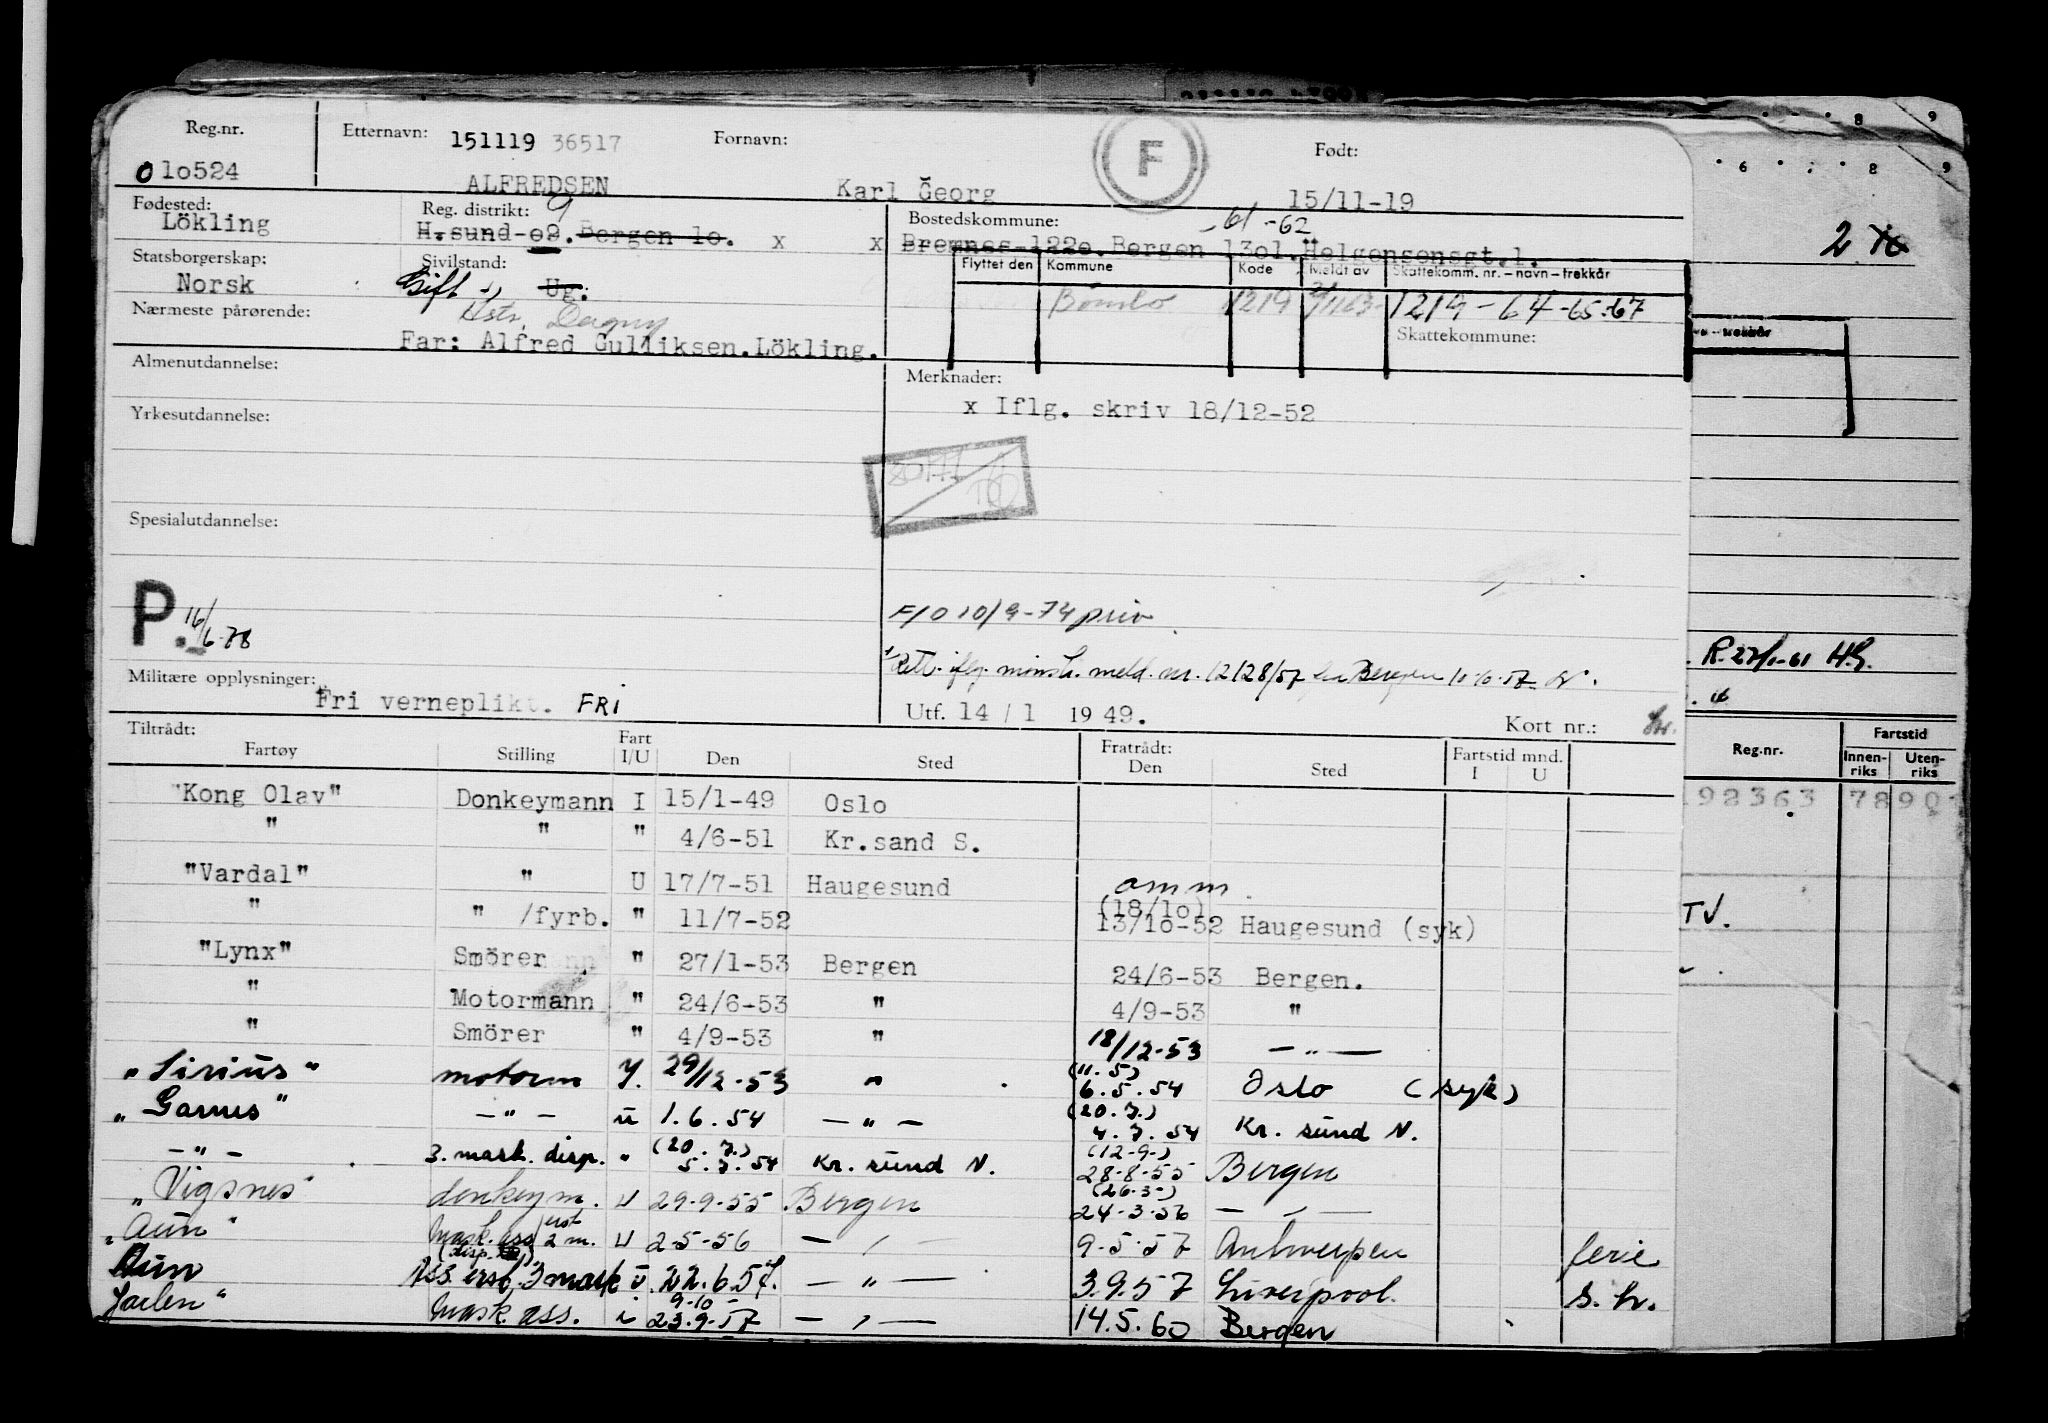 Reg.nr. Etternavn: 151119 36517 Fornavn: F Født:
0 1o524 ALFREDSEN Karl Georg 15/11-19
Fødested: Lökling
Reg. distrikt: 9
H.sund-o9. Bergen 1o. x
Bostedskommune: -61-62
x Bremnes 122o. Bergen 13o1. Helgensensgt.1.
Statsborgerskap: Norsk
Sivilstand: Gift Ug.
Flyttet den Kommune Kode Meldt av Skattekomm. nr. – navn – trekkår
Bömlo 1219 1219 - 64 -65-67
Nærmeste pårørende: Hstr. Dagny
Far: Alfred Gulliksen. Lökling.
Skattekommune:
Almenutdannelse:
Merknader:
x Iflg. skriv 18/12-52
Yrkesutdannelse:
Spesialutdannelse:
P. 16/6-78
F/O 10/9-74 priv
Rett. iflg. mönstr. meld. nr. 12128/57 fra Bergen
Militære opplysninger: Fri verneplikt. FRI
Utf. 14 / 1 19 49. Kort nr.:
Tiltrådt: Fratrådt:
Fartøy Stilling Fart I/U Den Sted Den Sted Fartstid mnd. I U
"Kong Olav" Donkeymann I 15/1-49 Oslo
" " " 4/6-51 Kr.sand S.
"Vardal" " U 17/7-51 Haugesund amm
(18/1o)
" " /fyrb. " 11/7-52 13/1o-52 Haugesund (syk)
"Lynx" Smörer " 27/1-53 Bergen 24/6-53 Bergen.
" Motormann " 24/6-53 " 4/9-53 "
" Smörer " 4/9-53 " 18/12-53 — " —
"Sirius" motorm Y. 29/12-53 " (11.5) 6.5.54 Oslo (syk)
"Garnes" — " — u 1.6.54 — " — (20.7.) 4.7.54 Kr. sund N.
— " — 3. mask. disp. " (20.7.) 5.7.54 Kr. sund N. (12-9-) 28-8-55 Bergen
"Vigsnes" donkeym. U 29-9-55 Bergen (26-3-) 24-3-56 — " —
"Aun" Mask. ass erst 2 m. U 2-5-56 — " — 9-5-57 Antwerpen ferie
(disp.
Aun Ass. erst. 3 mask u 22.6.57. — " — 3.9.57 Liverpool. s. h.
Jarlen" Mask. ass. i 9-10- 23-9-57 — " — 14.5.60 Bergen
8 9
6 8 9
2
R. 27/1-61 H.S.
Reg.nr. Fartstid
Innenriks Utenriks
192363 7890
TV.